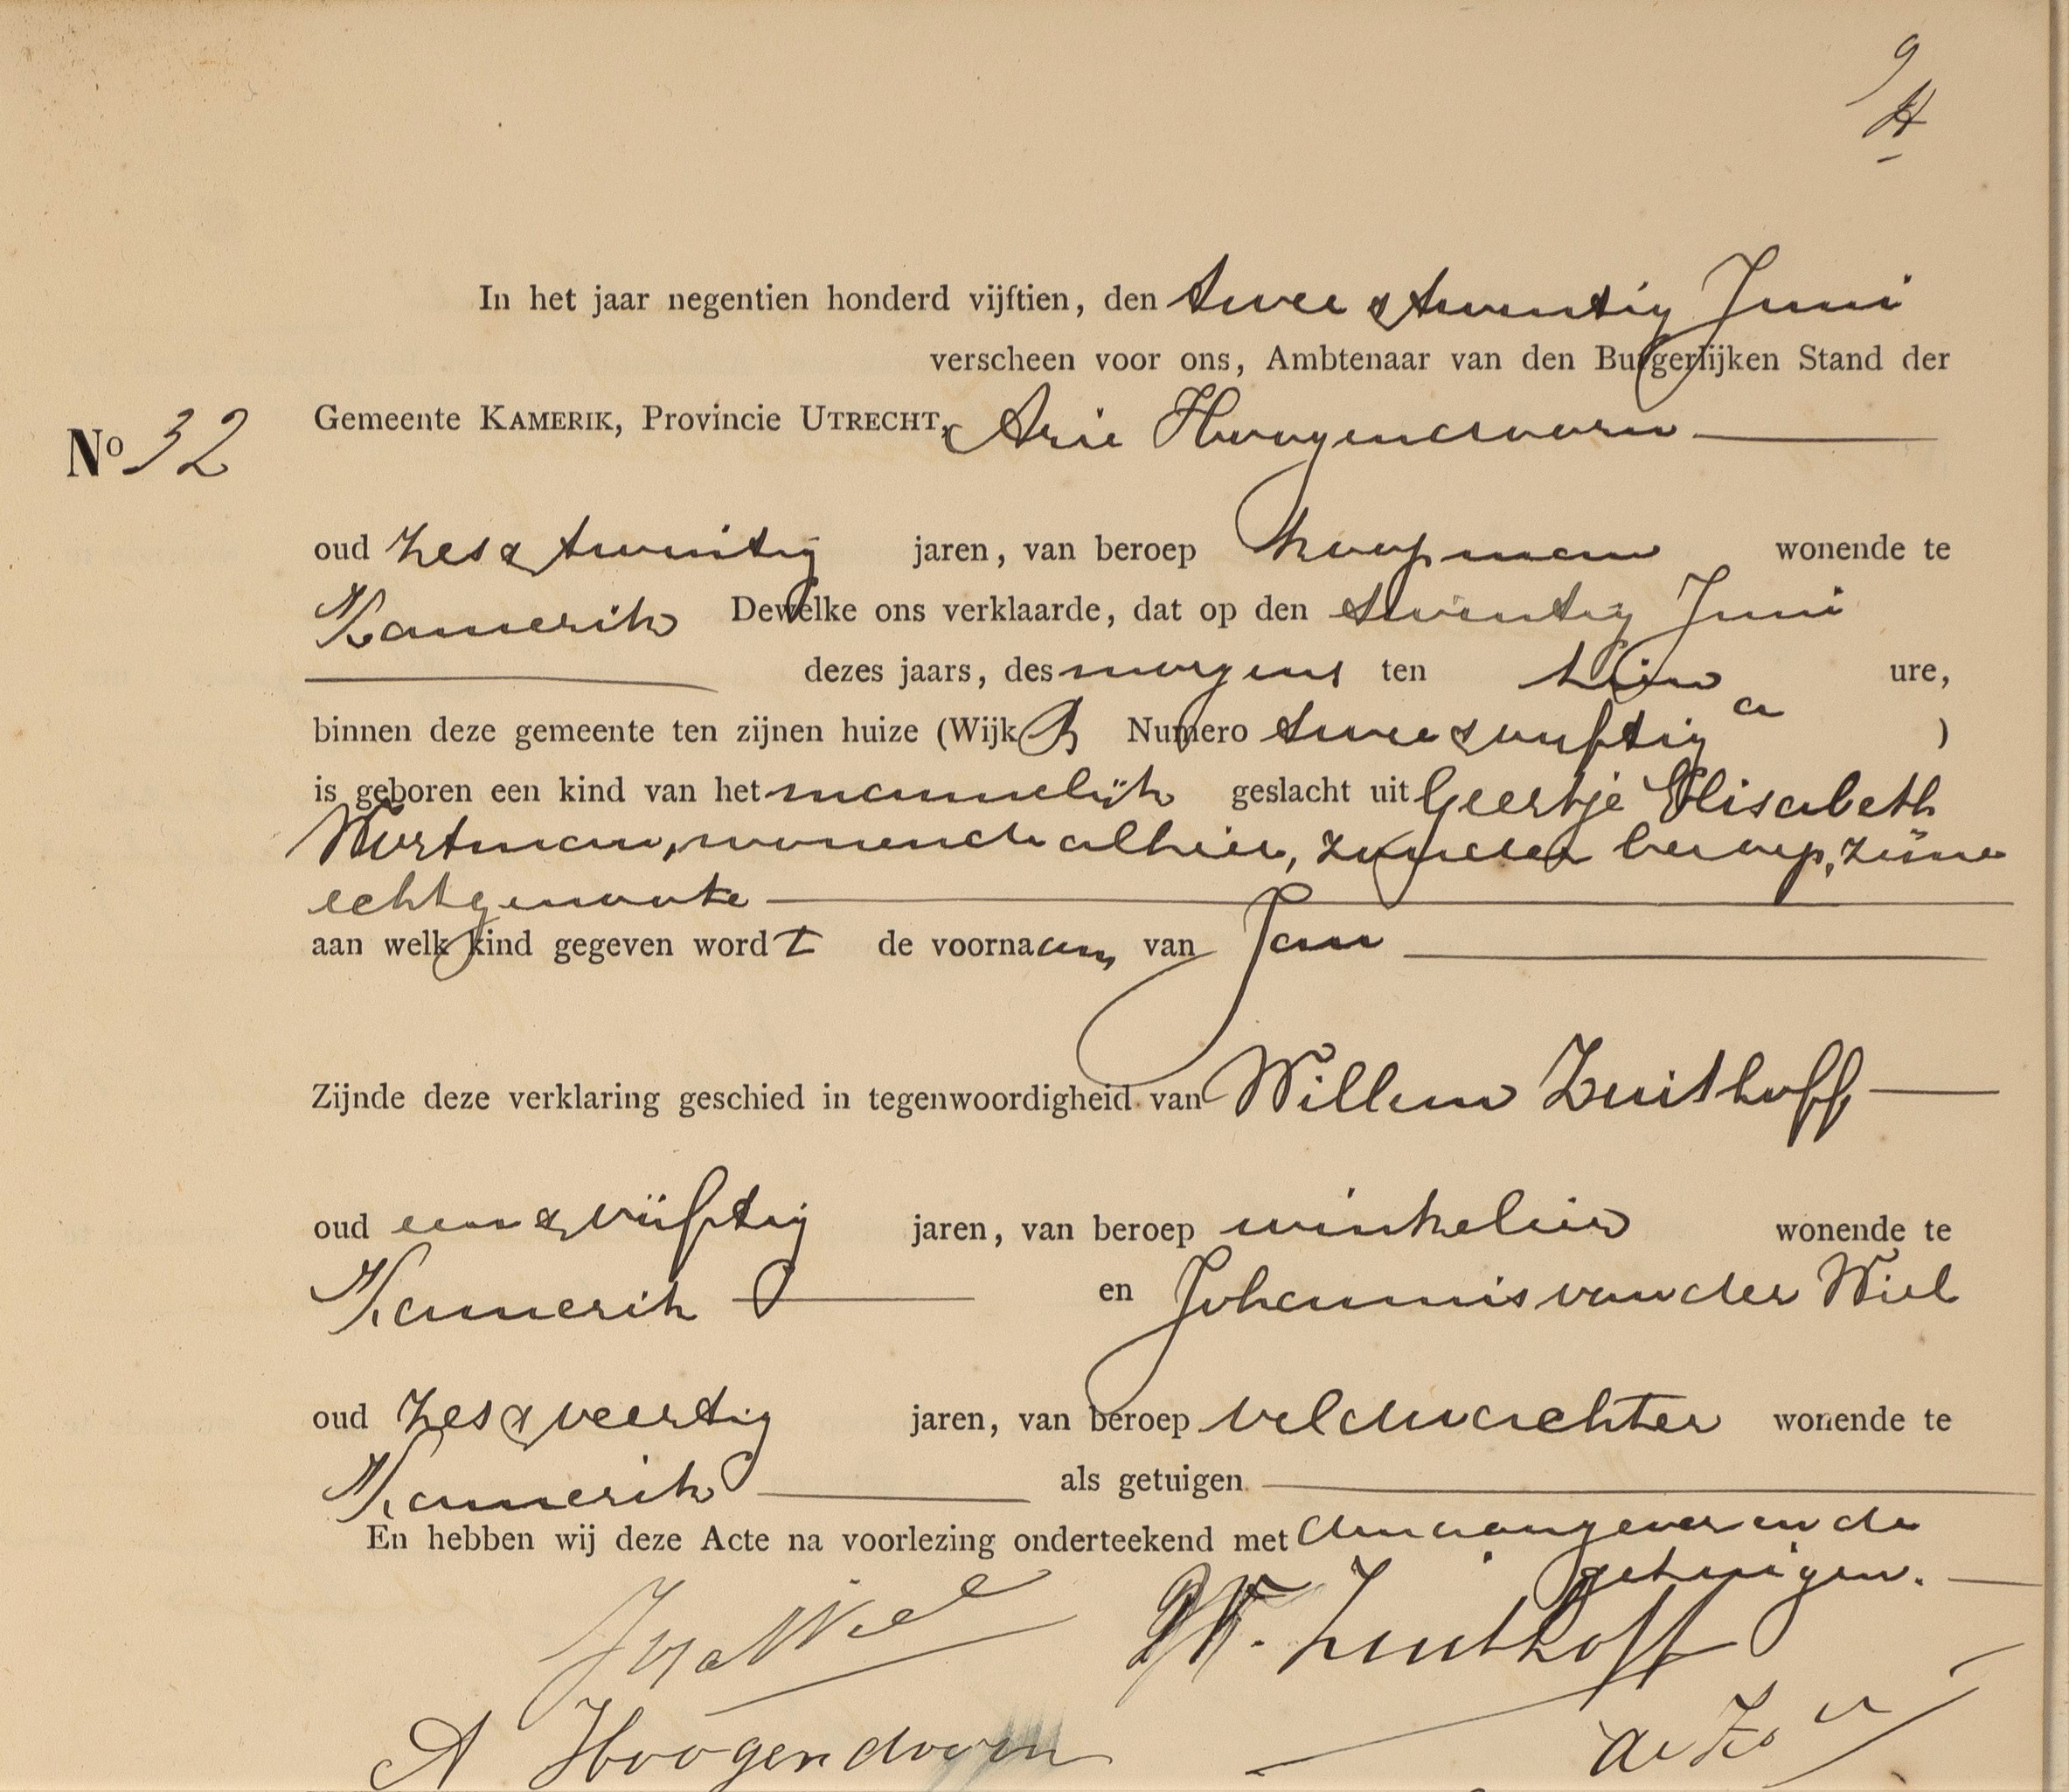 9
In het jaar negentien honderd vijftien, den twee & twintig Juni
verscheen voor ons, Ambtenaar van den Burgerlijken Stand der
Gemeente KAMERIK, Provincie UTRECHT, Arie Hoogendoorn
No 32
oud zes & twintig jaren, van beroep koopman wonende te
Kamerik Dewelke ons verklaarde, dat op den twintig Juni
dezes jaars, des morgens ten tien ure,
binnen deze gemeente ten zijnen huize (Wijk B Numero twee & vijftig a )
is geboren een kind van het mannelijk geslacht uit Geertje Elisabeth
Wortman, wonende alhier, zonder beroep, zijne
echtgenoote
aan welk kind gegeven wordt de voornaam van Jan
Zijnde deze verklaring geschied in tegenwoordigheid van Willem Zuithoff
oud een & vijftig jaren, van beroep winkelier wonende te
Kamerik en Johannis van der Wiel
oud zes & veertig jaren, van beroep veldwachter wonende te
Kamerik als getuigen
En hebben wij deze Acte na voorlezing onderteekend met den aangever en de
getuigen.
JvdWiel W. Zuithoff
A Hoogendoorn